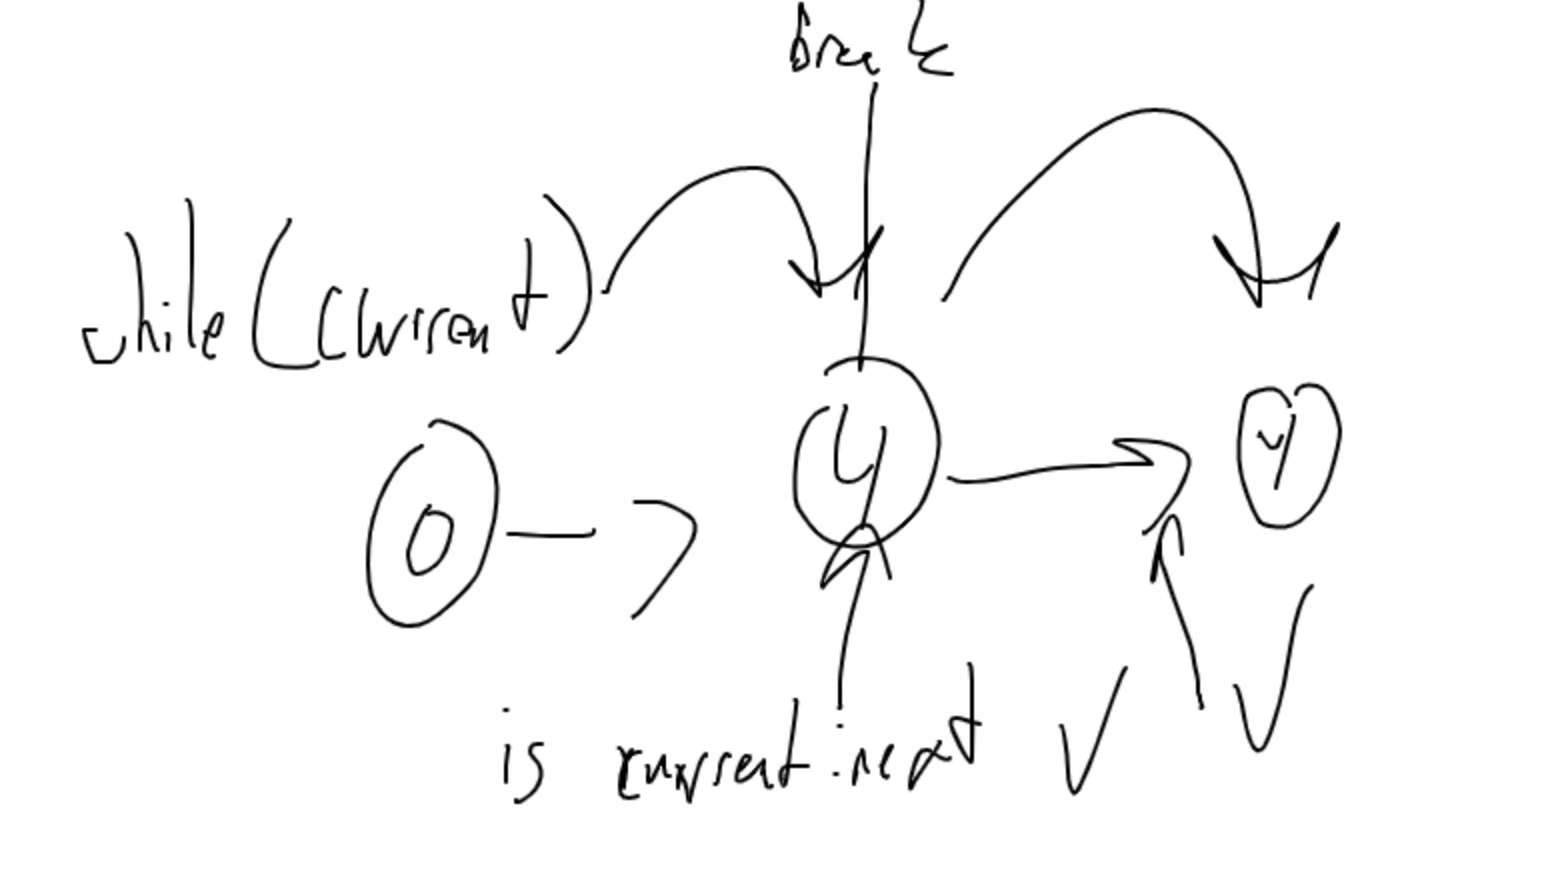 break
while(current)
0 -> 4 -> 4
is current.next ✓ ✓